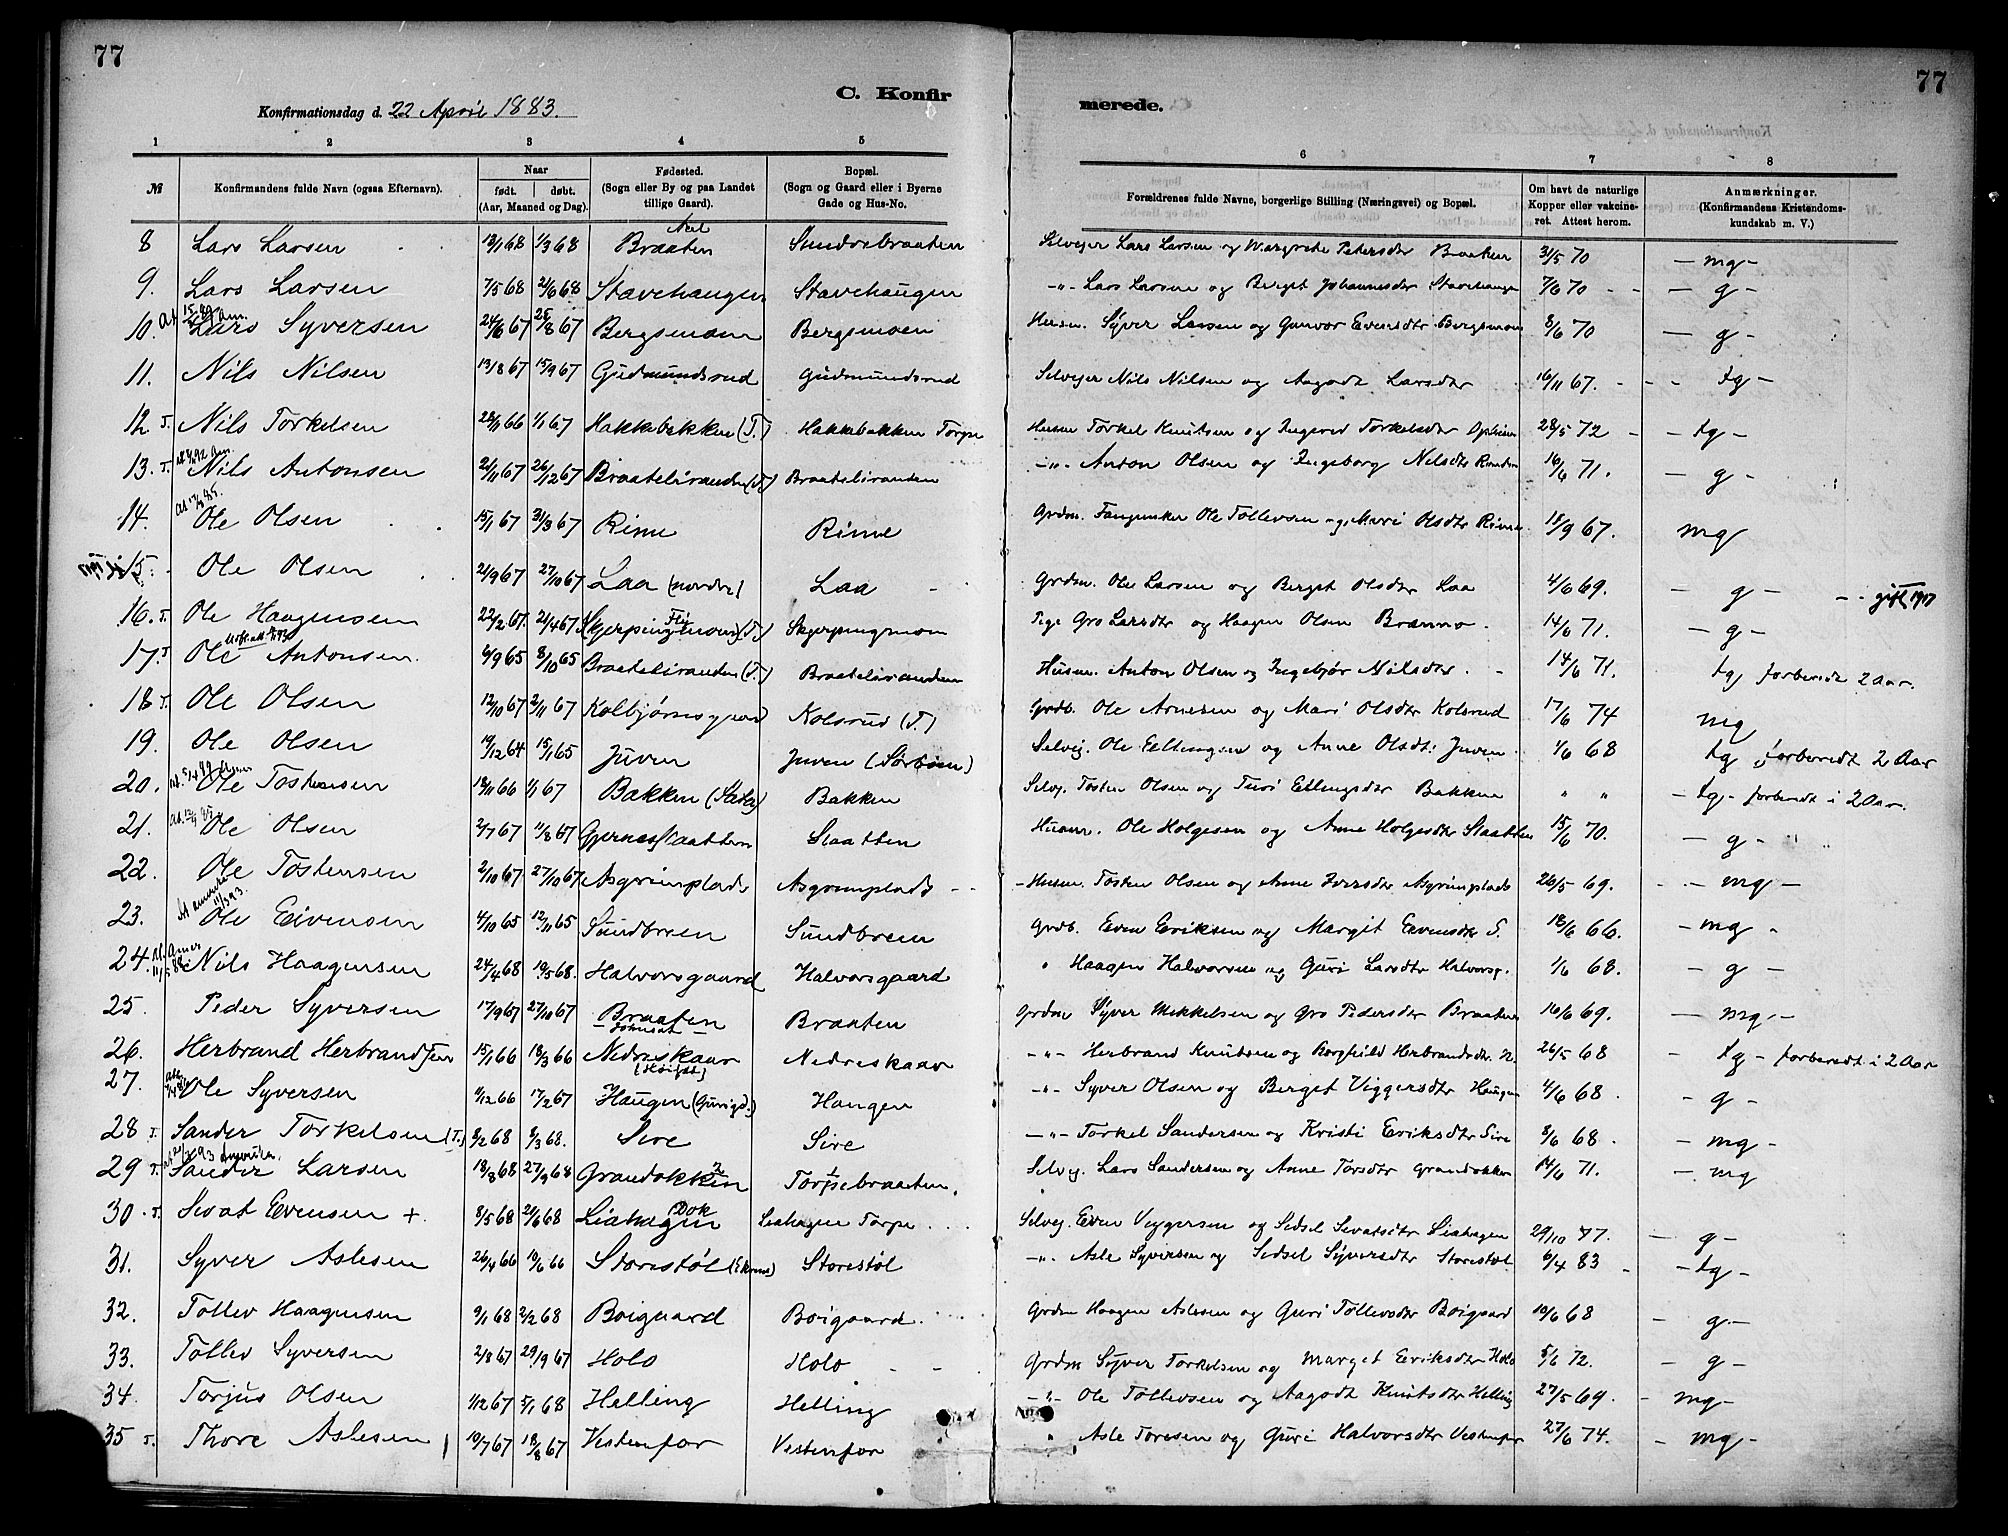 77
Konfirmationsdag d. 22 April 1883.
C. Konfir
merede.
77
1 2 3 4 5 6 7 8
№ Konfirmandens fulde Navn (ogsaa Efternavn). Naar født. døbt. (Aar, Maaned og Dag). Fødested. (Sogn eller By og paa Landet tillige Gaard). Bopæl. (Sogn og Gaard eller i Byerne Gade og Hus-No. Forældrenes fulde Navne, borgerlige Stilling (Næringsvei) og Bopæl. Om havt de naturlige Kopper eller vakcineret. Attest herom. Anmærkninger. (Konfirmandens Kristendomskundskab m. V.)
8 Lars Larsen 13/1 68 1/3 68 Aal Braaten Sundrebraaten Selvejer Lars Larsen og Margrete Petersdtr Braaten 31/5 70 - mg -
9. Lars Larsen 7/5 68 21/6 68 Stavehaugen Stavehaugen -"- Lars Larsen og Berget Johannesdtr Stavehaugen 7/6 70 - g -
10. Lars Syversen 24/6 67 25/8 67 Bergsmoen Bergsmoen Husm. Syver Larsen og Gunvor Evensdtr Bergsmoen 8/6 70 - g -
11. Nils Nilsen 13/8 67 15/9 67 Gudmundsrud Gudmundsrud Selvejer Nils Nilsen og Aagodt Larsdtr 16/11 67. tg -
12. T. Nils Torkelsen 28/11 66 1/1 67 Hakkebakken (T.) Hakkebakken Torpe Husm Torkel Knutsen og Ingerid Torkelsdtr 28/5 72 - tg -
13. T. Nils Antonsen 21/11 67 26/12 67 Braateliranden (T.) Braateliranden -"- Anton Olsen og Ingeborg Nilsdtr 16/6 71. - g -
14. Ole Olsen 15/1 67 31/3 67 Rime Rime Grdm. Ole Tollevsen og Mari Olsdtr Rime 18/9 67. mg
15. Ole Olsen 21/9 67 27/10 67 Laa (nordre) Laa Grdm. Ole Larsen og Berget Olsdtr Laa 4/6 69. - g - gift 1917
16. T. Ole Haagensen 22/2 67. 21/4 67 Skjerpingmoen (T.) Skjerpingmoen Pige Gro Larsdtr og Haagen Olsen 14/6 71. - g -
17. T Ole Antonsen. 6/9 65 8/10 65 Braateliranden (T.) Braateliranden Husm. Anton Olsen og Ingebjør Nilsdtr. 14/6 71. tg forberedt 2 Aar.
18 T. Ole Olsen 12/10 67 2/11 67 Kolbjørnsgaard Kolsrud (T.) Grdb. Ole Arnesen og Mari Olsdtr Kolsrud 17/6 74 mg
19. Ole Olsen 19/12 64 15/1 65 Juven Juven Selvej. Ole Ellingsen og Anne Olsdtr Juven 1/6 68 tg forberedt 2 Aar
20. Ole Tostensen 18/11 66 1/1 67 Bakken Bakken Selvej. Tosten Olsen og Turi Ellingsdtr Bakken " " - tg - forberedt i 2 Aar.
21. Ole Olsen 2/7 67 11/8 67 Gjerneslaatten Slaatten Husm. Ole Holgesen og Anne Holgesdtr Slaatten 15/6 70. - g -
22. Ole Tostensen 2/10 67 27/10 67 Asgrimplads Asgrimplads Husm. Tosten Olsen og Anne Iversdtr Asgrimplads 26/5 69. - mg -
23. Ole Eivensen 4/10 65 12/11 65 Sundbreen Sundbreen Grdb. Even Eriksen og Margit Evensdtr S. 18/6 66. - mg
24. Nils Haagensen 24/4 68 10/5 68. Halvorsgaard Halvorsgaard " Haagen Halvorsen og Guri Larsdtr Halvorsg. 1/6 68. - g -
25. Peder Syversen 17/9 67 27/10 67 Braaten Braaten Grdm Syver Mikkelsen og Gro Pedersdtr Braaten 16/6 69. - mg -
26. Herbrand Herbrandsen 15/1 66 18/3 66 Nedreskaar Nedreskaar -"- Herbrand Knutsen og Borghild Herbrandsdtr. N. 26/5 68 - tg - forberedt i 2 Aar
27. Ole Syversen 11/12 66 17/2 67 Haugen Haugen -"- Syver Olsen og Berget Viggersdtr Haugen 4/6 68. - g -
28 T. Sander Torkelsen (T.) 8/2 68 8/3 68. Sire Sire -"- Torkel Sandersen og Kristi Eriksdtr Sire 8/6 68. - mg -
29 T. Sander Larsen 18/8 68 27/9 68 Grandokken Torpebraaten. Selvej. Lars Sandersen og Anne Torsdtr Grandokken 14/6 71. - mg
30. T. Sevat Evensen +. 8/5 68 21/6 68 Liahagen Liahagen Torpe Selvej. Even Viggersen og Sidsel Sevatsdtr Liahagen 29/10 77. - g -
31. Syver Aslesen 26/4 66 10/6 66 Storestøl Storestøl -"- Asle Syversen og Sidsel Syversdtr Storestøl 6/4 83 - tg -
32. Tollev Haagensen 9/1 68 2/2 68 Boigaard Boigaard. Grdm Haagen Aslesen og Guri Tollevsdtr Boigaard 10/6 68 - g -
33. Tollev Syversen 2/8 67 29/9 67 Holo Holo Grdm Syver Torkelsen og Marget Eriksdtr Holo 5/6 72. - g -
34. Torjus Olsen 1/12 67 5/1 68 Helling Helling -"- Ole Tollevsen og Aagodt Knutsdtr Helling 27/5 69. - mg -
35 T. Thore Aslesen 10/7 67 18/8 67 Vestenfor Vestenfor " Asle Toresen og Guri Halvorsdtr Vestenfor 27/6 74. - mg -